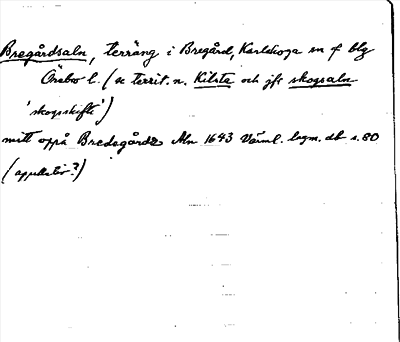 Bregårdsaln, terräng i Bregård, Karlskoga sn o f blg
Örebro l. (se territ. n. Kilsta och jfr skogsaln
'skogsskifte')
mitt oppå Bredegårdz Aln 1643 Värml. lagm. db s. 80
(appellativ?)